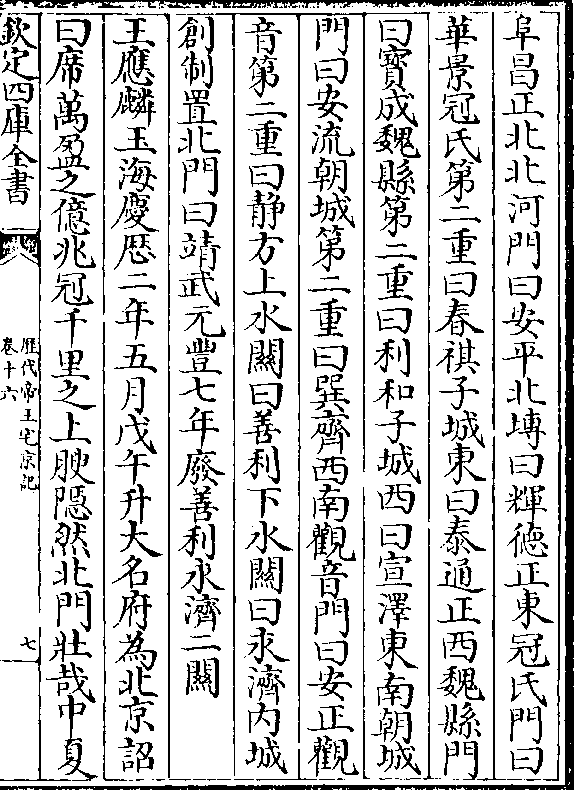 阜昌正北北河門曰安平北塼曰輝徳正東冠氏門曰
華景冠氏第二重曰春祺子城東曰泰通正西魏縣門
曰寳成魏縣第二重曰利和子城西曰宣澤東南朝城
門曰安流朝城第二重曰巽齊西南觀音門曰安正觀
音第二重曰静方上水闗曰善利下水闗曰永濟内城
創制置北門曰靖武元豐七年廢善利永濟二闗
王應麟玉海慶厯二年五月戊午升大名府為北京詔
曰席萬盈之億兆冠千里之上腴隠然北門壯哉中夏
欽定四庫全書
歴代帝王宅京記
卷十六
七